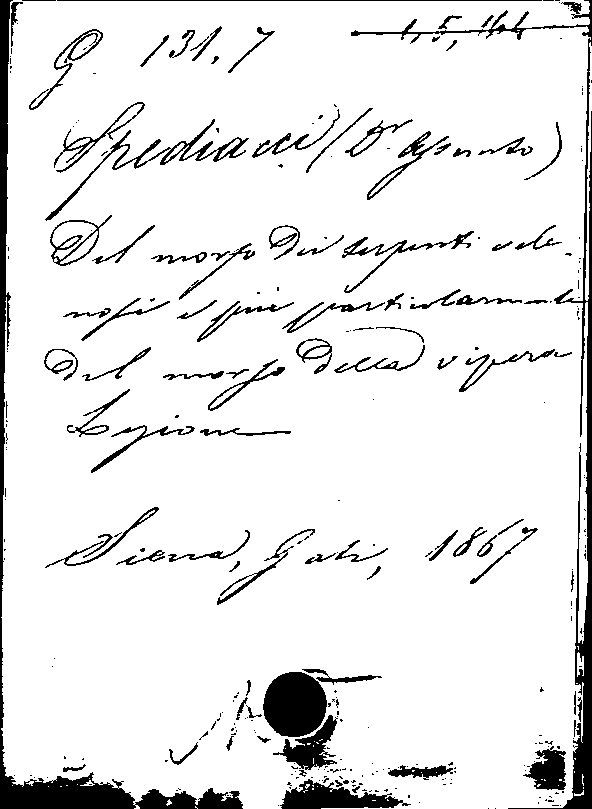 G 131.7 1,5,144
Spediacci (Dr Assunto)
Del morso dei serpenti vele-
nosi e più particolarmente
del morso della vipera
Lezione
Siena, Gati, 1867